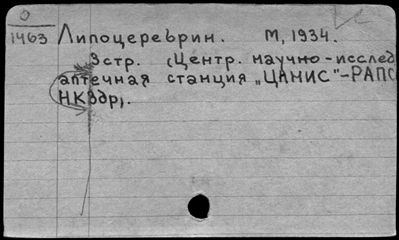 О
1463 Липоцеребрин. М, 1934.
3стр. (Центр. научно-исслед
аптечная станция „ЦАНИС"-РАПО
НКЗдр).